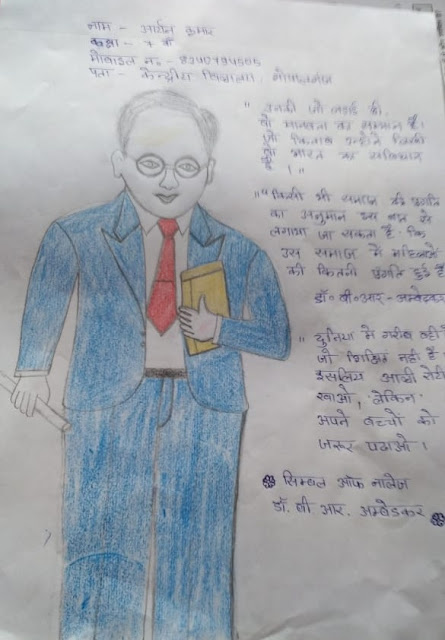 नाम - आर्यन कुमार
कक्षा - 7 वीं
मोबाइल न०-
पता - केन्द्रीय विद्यालय, गोपालगंज
" उनकी जो लड़ाई थी,
वो मानवता का सम्मान है।
जो किताब उन्होंने लिखी
वो भारत का संविधान
है।"
"किसी भी समाज की प्रगति
का अनुमान इस बात से
लगाया जा सकता है कि
उस समाज में महिलाओं
की कितनी प्रगति हुई है
डॉ० बी०आर०-अम्बेडकर
" दुनिया में गरीब वही
जो शिक्षित नही है।
इसलिए आधी रोटी
खाओ, लेकिन
अपने बच्चों को
जरूर पढाओ।
सिम्बल ऑफ नालेज
डॉ. बी. आर. अम्बेडकर